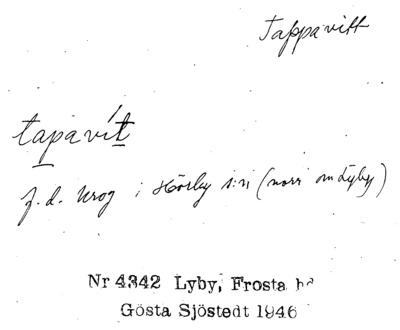 Tappavitt
tapavít
f.d. krog i Hörby s:n (norr om Lyby)
Nr 4342 Lyby, Frosta hd
Gösta Sjöstedt 1946